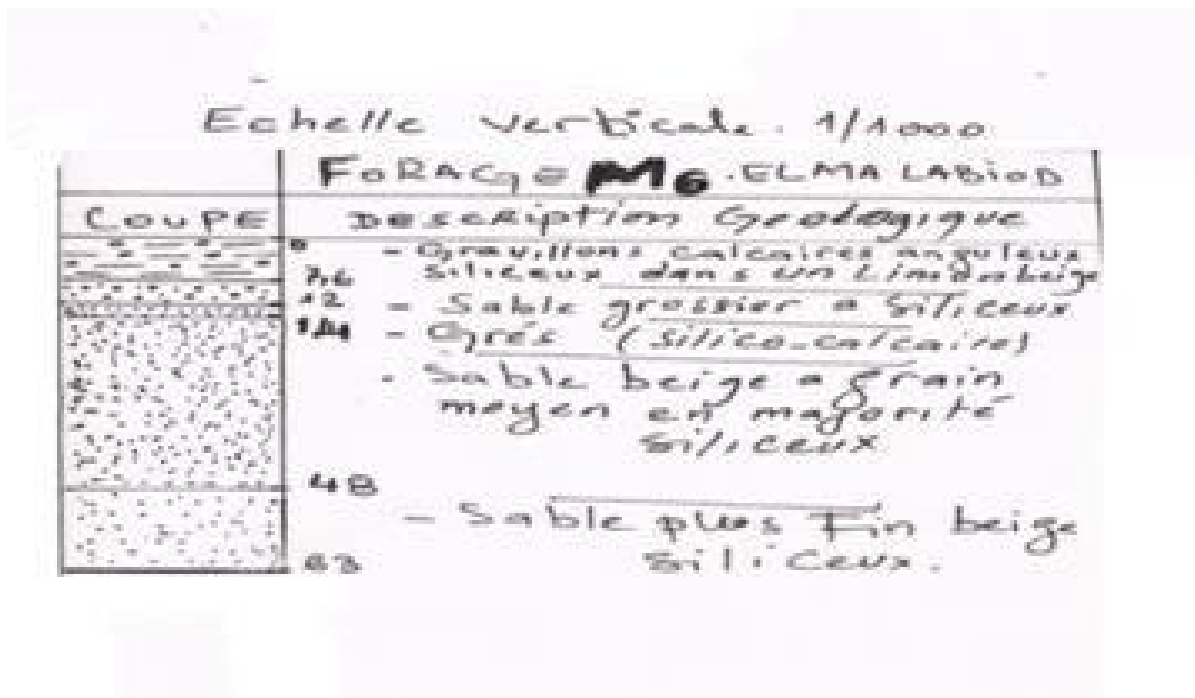 Echelle verticale. 1/1000
FORAGE M6. ELMA LABIOD
COUPE DESCRIPTION Géologique
0 - Gravillons calcaires anguleux
siliceux dans un Limon beige
7,6
12 - Sable grossier a Siliceux
14 - Grés (silico-calcaire)
- Sable beige a grain
moyen en majorité
siliceux
48
- Sable plus Fin beige
siliceux.
63